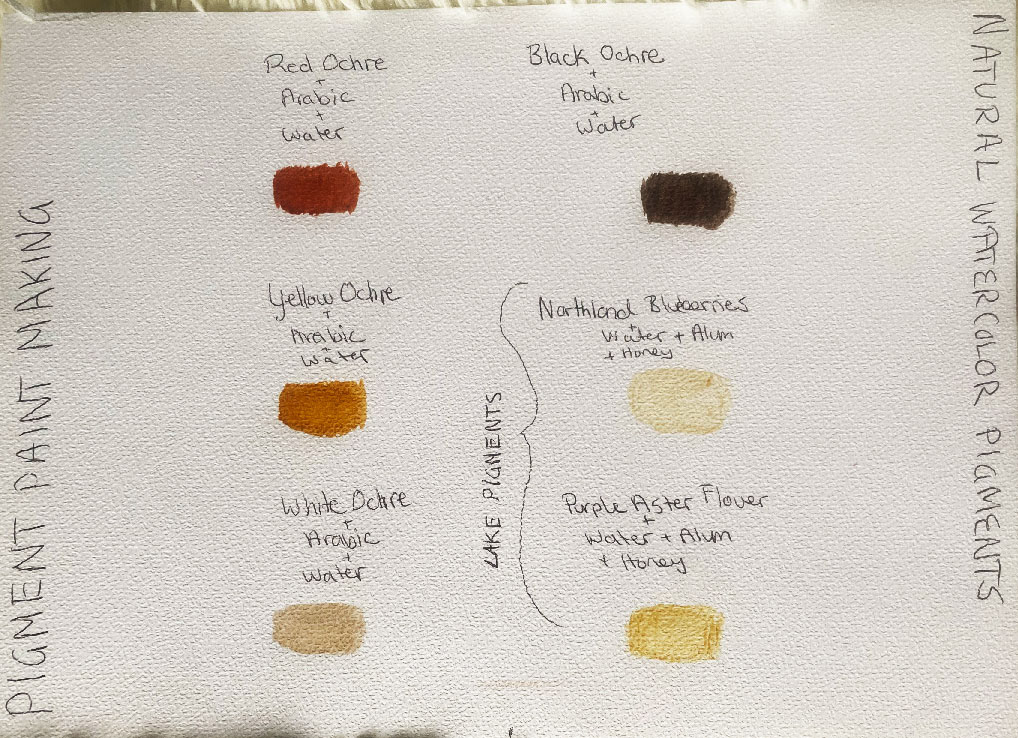 PIGMENT PAINT MAKING
Red Ochre
+
Arabic
+
Water
Black Ochre
+
Arabic
+
Water
Yellow Ochre
+
Arabic
+
Water
LAKE PIGMENTS
Northland Blueberries
+
Water + Alum
+ Honey
White Ochre
+
Arabic
+
Water
Purple Aster Flower
+
Water + Alum
+ Honey
NATURAL WATERCOLOR PIGMENTS